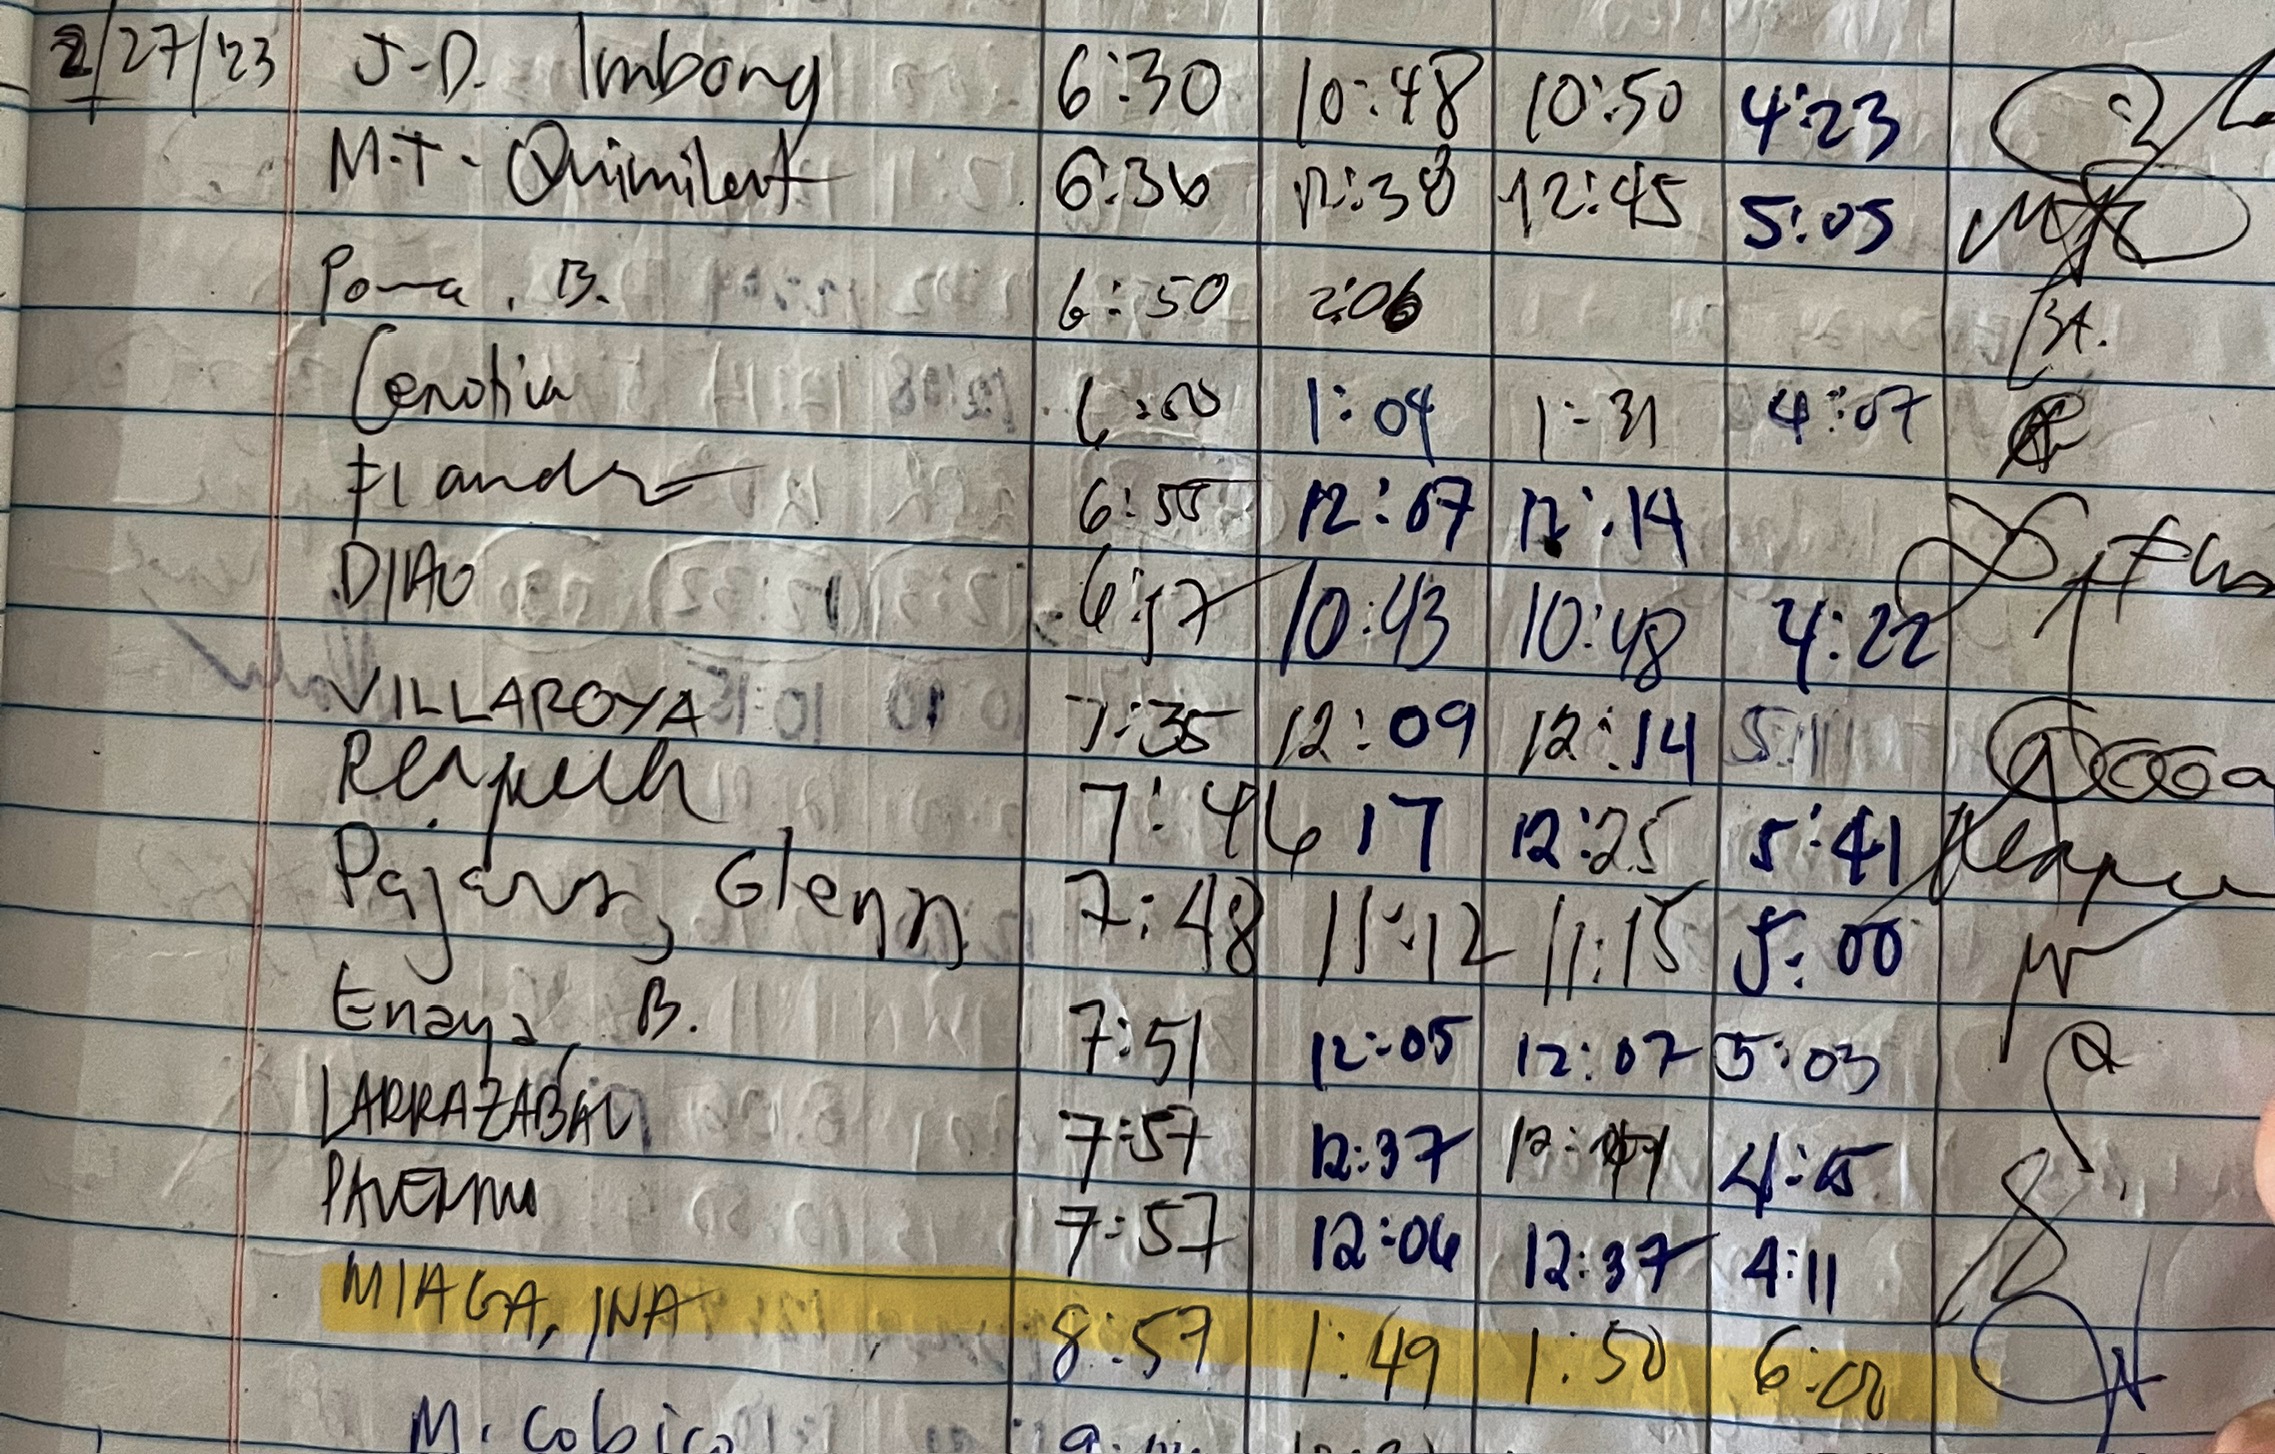 2/27/'23 J-D. Imbong 6:30 10:48 10:50 4:23
M.T. Quimilat 6:36 12:38 12:45 5:05
B. 6:50 2:06
Cenobia 6:50 1:04 1:31 4:07
6:55 12:07 12:14
DIAO 6:57 10:43 10:48 4:22
VILLAROYA 7:35 12:09 12:14 5:11
7:46 17 12:25 5:41
Glenn 7:48 11:12 11:15 5:00
Enaya, B. 7:51 12:05 12:07 5:03
LARRAZABAL 7:57 12:37 4:15
7:57 12:06 12:37 4:11
MIAGA, INA 8:57 1:49 1:50 6:00
M. Cobico